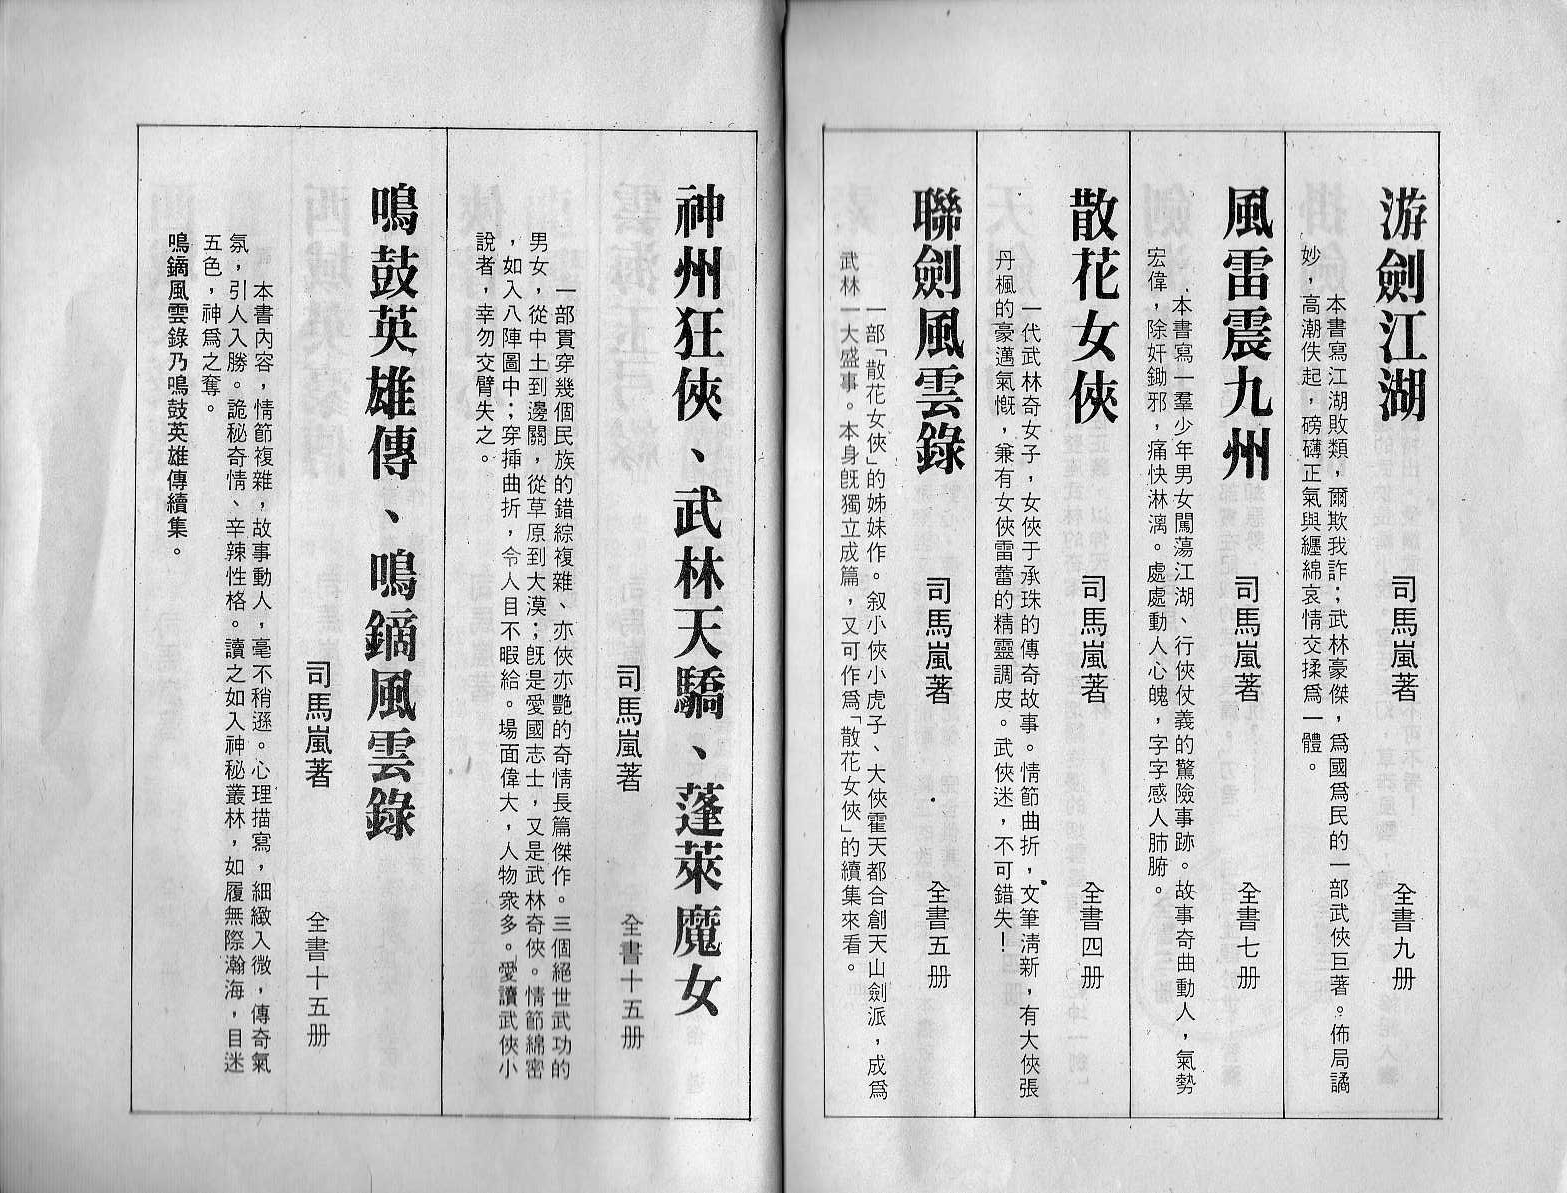 游劍江湖
司馬嵐著
全書九册
本書寫江湖敗類，爾欺我詐；武林豪傑，爲國爲民的一部武俠巨著。佈局譎
妙，高潮佚起，磅礴正氣與纏綿哀情交揉爲一體。
風雷震九州
司馬嵐著
全書七册
本書寫一羣少年男女闖蕩江湖、行俠仗義的驚險事跡。故事奇曲動人，氣勢
宏偉，除奸鋤邪，痛快淋漓。處處動人心魄，字字感人肺腑。
散花女俠
司馬嵐著
全書四册
一代武林奇女子，女俠于承珠的傳奇故事。情節曲折，文筆淸新，有大俠張
丹楓的豪邁氣慨，兼有女俠雷蕾的精靈調皮。武俠迷，不可錯失！
聯劍風雲錄
司馬嵐著
全書五册
一部「散花女俠」的姊妹作。叙小俠小虎子、大俠霍天都合創天山劍派，成爲
武林一大盛事。本身旣獨立成篇，又可作爲「散花女俠」的續集來看。
神州狂俠、武林天驕、蓬萊魔女
司馬嵐著
全書十五册
一部貫穿幾個民族的錯綜複雜、亦俠亦艷的奇情長篇傑作。三個絕世武功的
男女，從中土到邊關，從草原到大漠；旣是愛國志士，又是武林奇俠。情節綿密
，如入八陣圖中；穿揷曲折，令人目不暇給。場面偉大，人物衆多。愛讀武俠小
說者，幸勿交臂失之。
鳴鼓英雄傳、鳴鏑風雲錄
司馬嵐著
全書十五册
本書內容，情節複雜，故事動人，毫不稍遜。心理描寫，細緻入微，傳奇氣
氛，引人入勝。詭秘奇情、辛辣性格。讀之如入神秘叢林，如履無際瀚海，目迷
五色，神爲之奪。
鳴鏑風雲錄乃鳴鼓英雄傳續集。